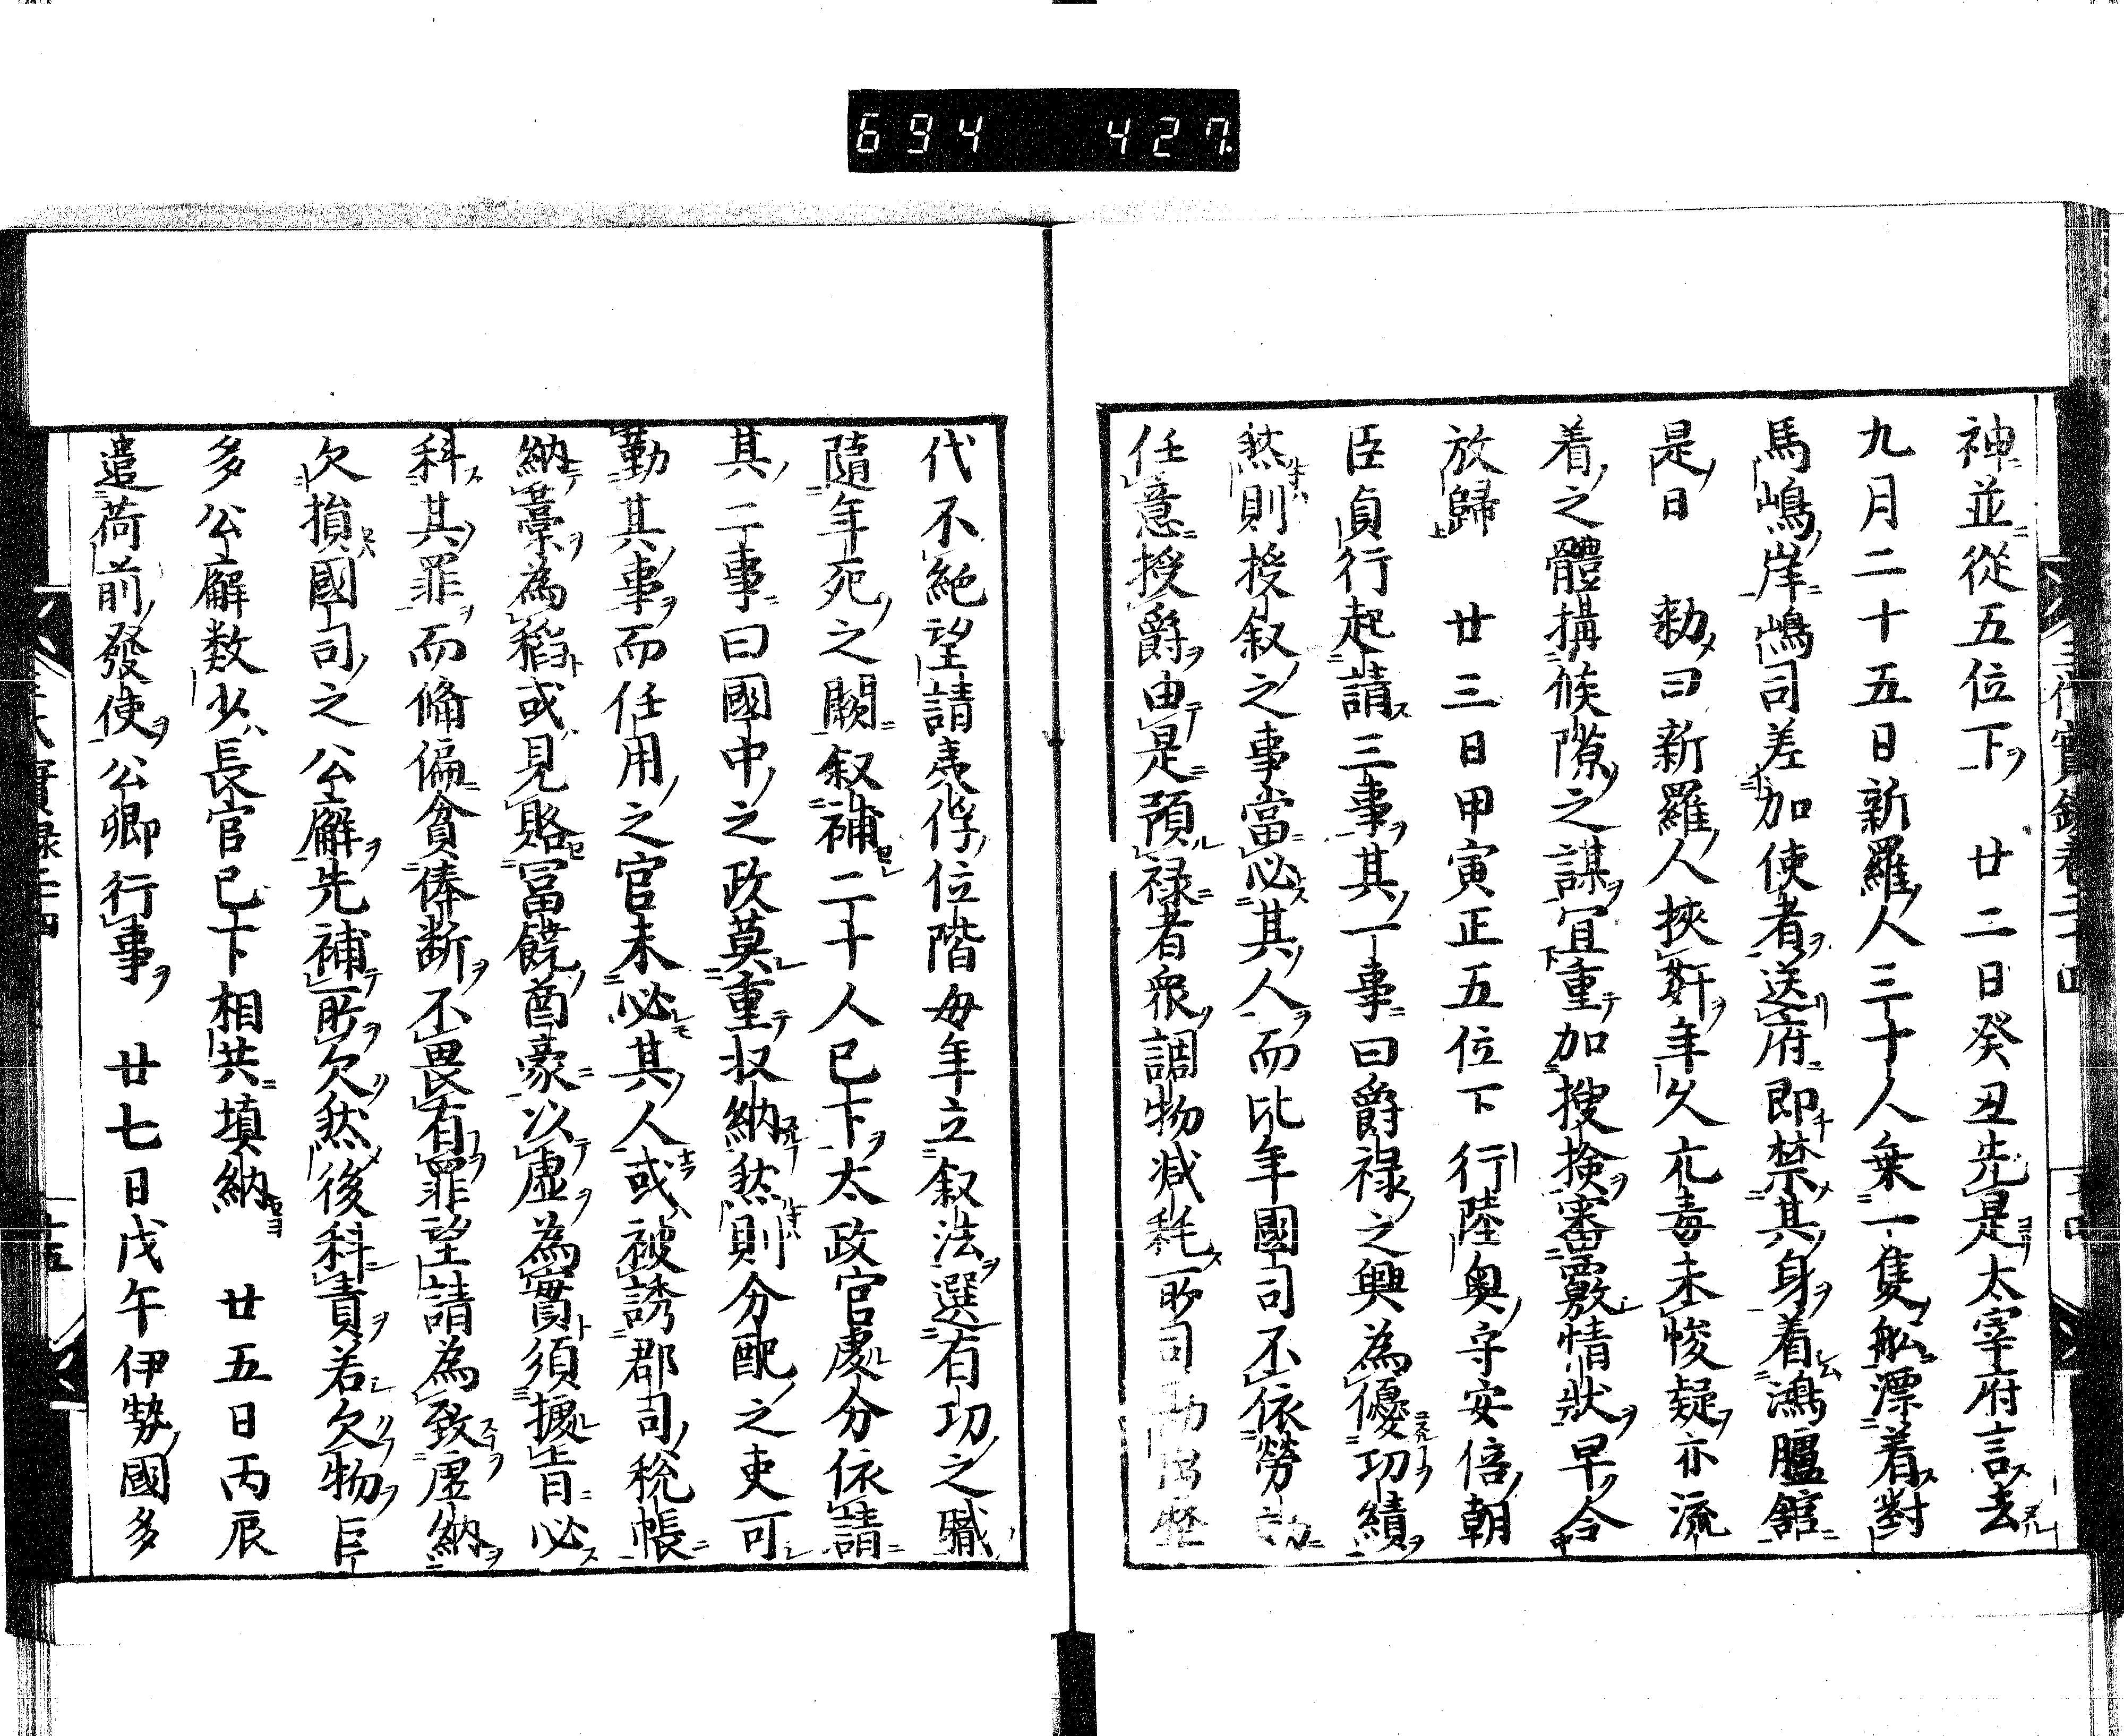 694 427
神並從五位下 廿二日癸丑先是太宰府言去
九月二十五日新羅人三十人乗一隻舩漂着對
馬嶋岸嶋司差加使者送府即禁其身着鴻臚館
是日 勅曰新羅人挾奸年久亢毒未悛疑亦流
着之體搆候隙之謀宜重加搜検審覈情狀早令
放歸 廿三日甲寅正五位下行陸奥守安倍朝
臣貞行起請三事其一事曰爵禄之興為優功績
然則授叙之事當必其人而比年國司不依勞
任意授爵由是預禄者衆調物減耗所司
代不絶望請夷俘位階毎年立叙法選有功之職
隨年死之闕叙補二十人已下太政官處分依請
其二事曰國中之政莫重収納然則分配之吏可
勤其事而任用之官未必其人或被誘郡司税帳
納藁為稻或見賂冨饒酋豪以虚為實須據旨必
科其罪而偹偏貧俸断不畏有罪望請為致虚納
欠損國司之公廨先補所欠然後科責若欠物巨
多公廨数少長官已下相共填納 廿五日丙辰
遣荷前發使公卿行事 廿七日戊午伊勢國多